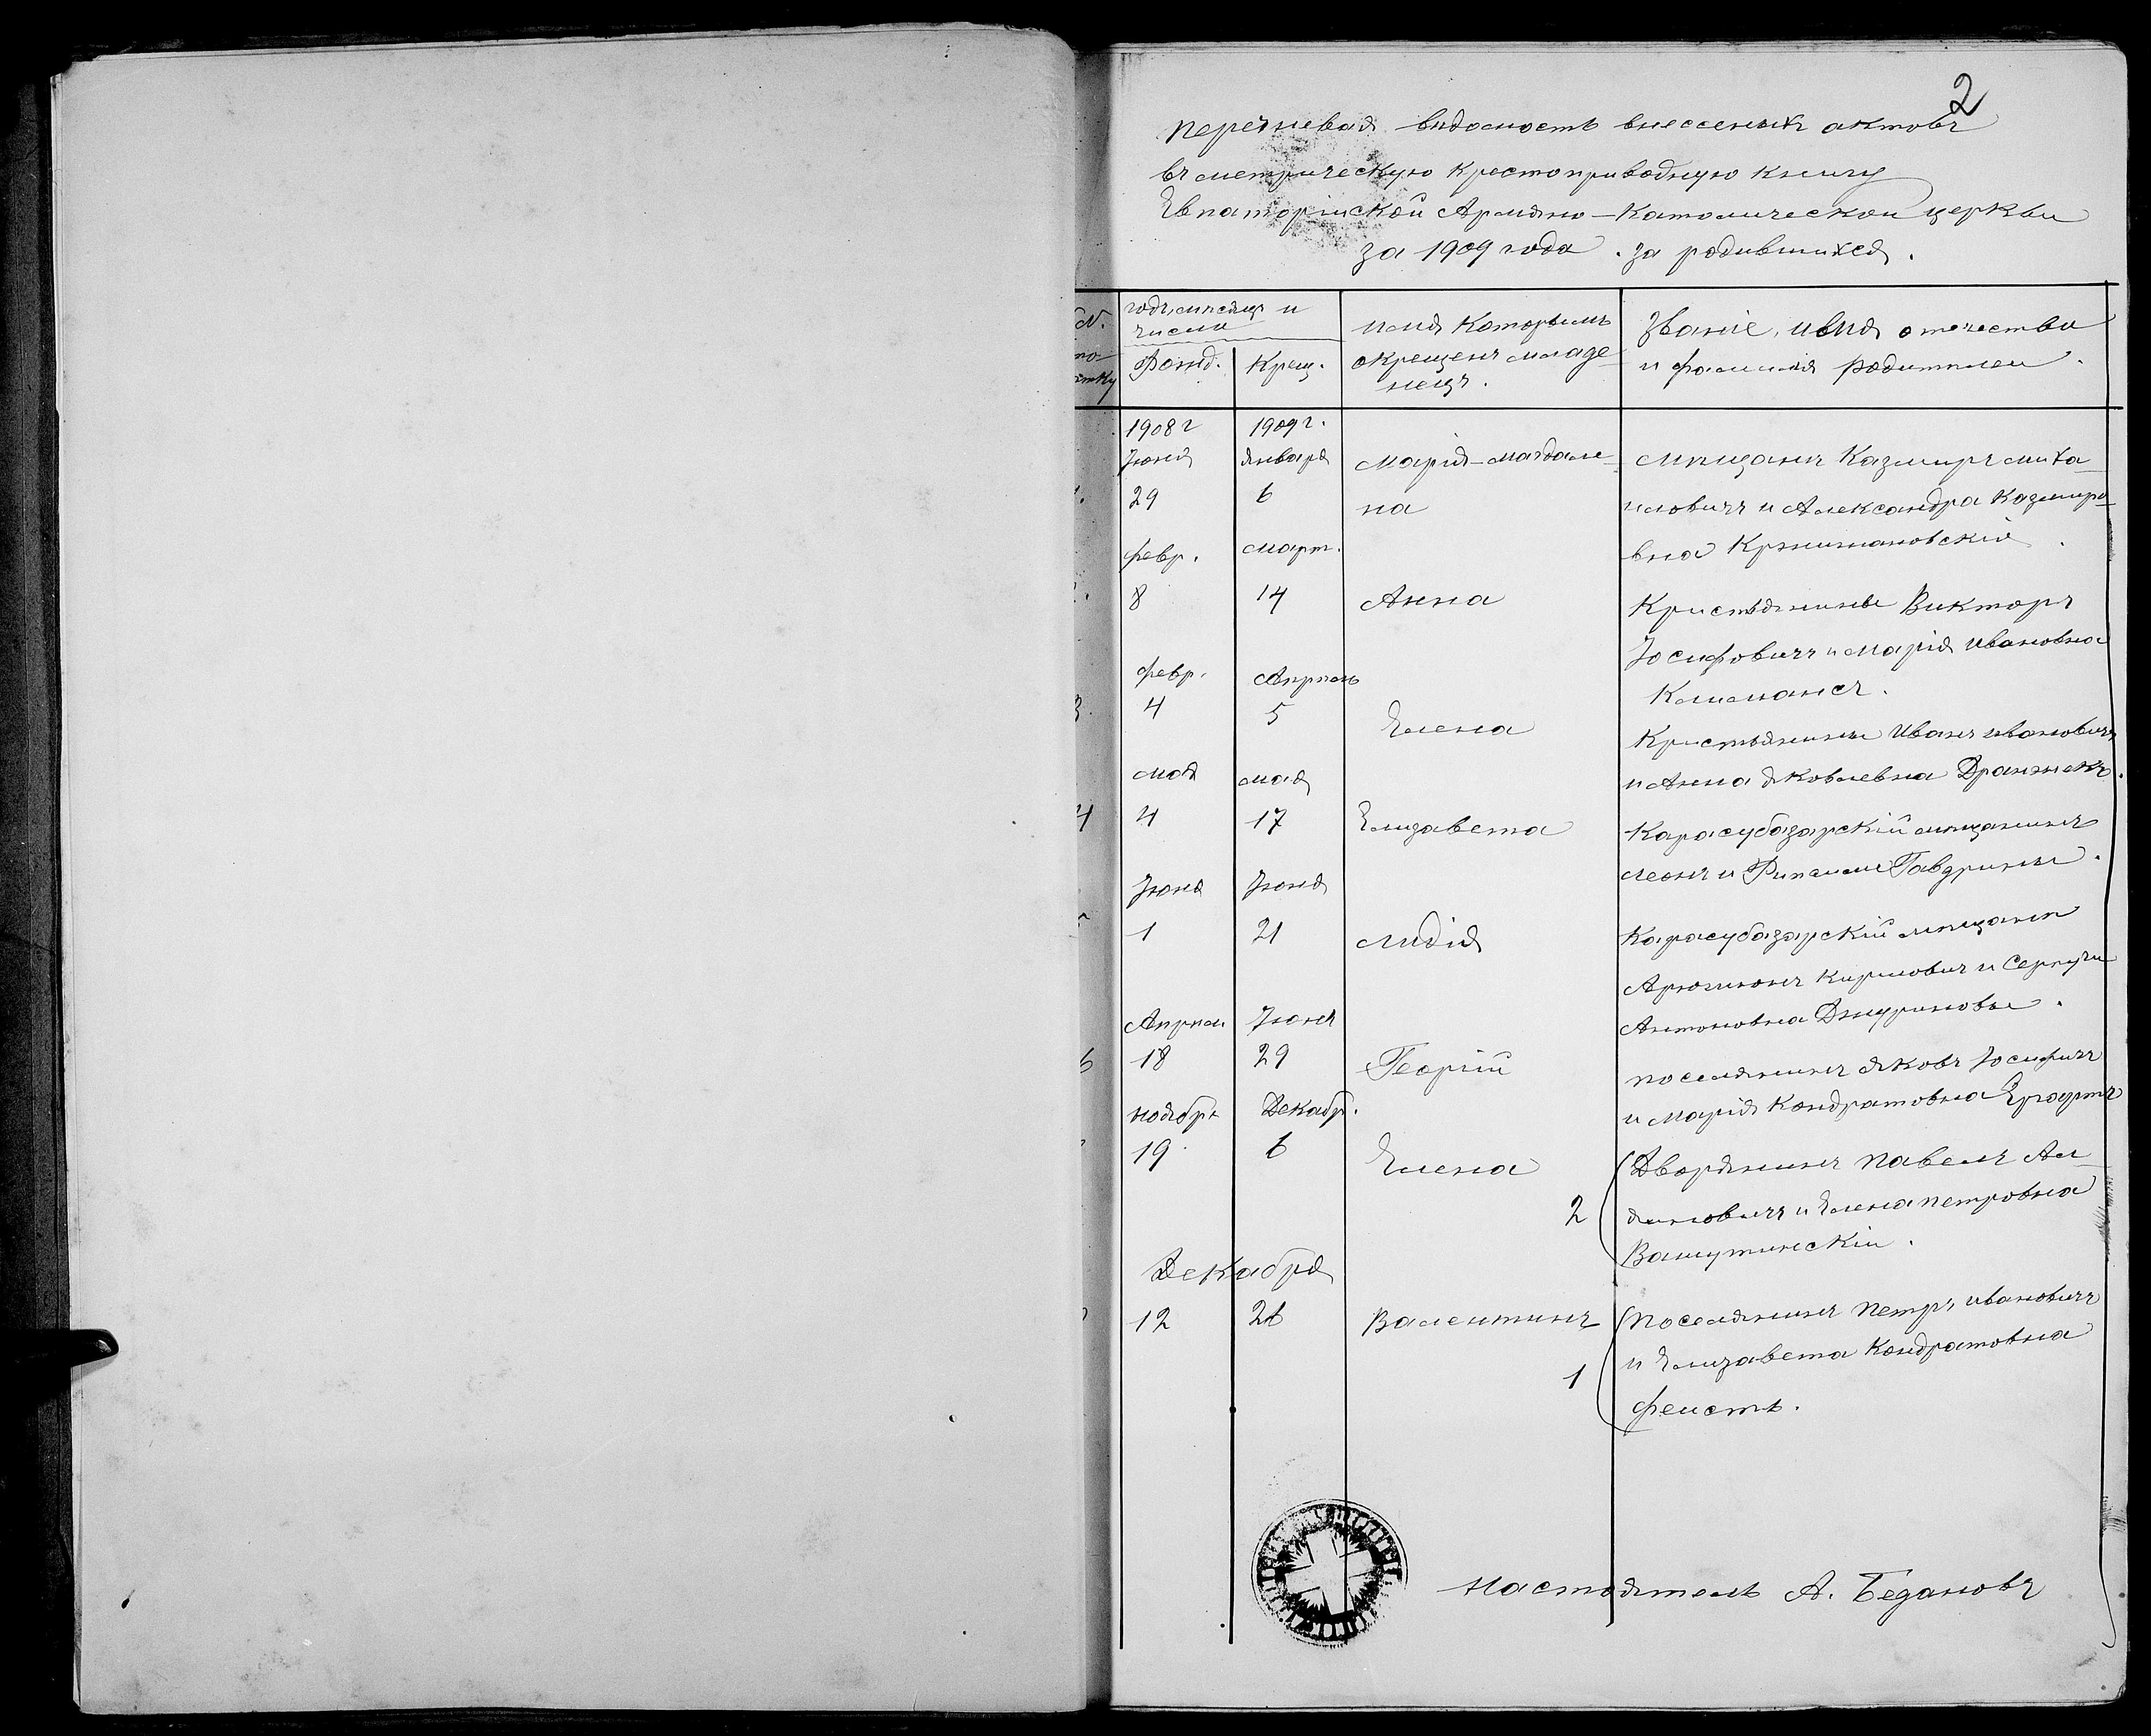 2
перечневая вѣдомость внессеных актовъ
въ метрическую крестоприводную книгу
Евпаторійской Армяно-Католической церкви
за 1909 года. за родившихся.
№. по
годъ, мѣсяцъ и число
Рожд. Крещ.
имя которымъ окрещенъ младенецъ.
Званіе, имя отечество и фамилія родителеи.
1908 г 1909 г.
Іюня Января Марія-Магдале- мѣщанъ Казмиръ Миха-
29 6 на иловичъ и Александра Казмиро-
вна Кржижановскіе.
февр. март.
8 14 Анна Кристьянины Викторъ
Іосифовичъ и Марія Ивановна
февр. Апрѣль
Клемансъ.
3. 4 5 Елена Кристьянины Иванъ Ивановичъ
мая мая и Анна Яковлевна Дранжекъ.
4 4 17 Елизавета Карасубазарскій мѣщанинъ
Леонъ и Рипсиме Гаварины.
Іюня Іюня
1 21 Лидія Карасубазарскій мѣщанин
Арютюнъ Кириович и Серпуги
Апрѣл. Іюня Антоновна Джуриновы.
6 18 29 Георгій поселянинъ Яковъ Іосифичъ
и Марія Кондратовна Ергартъ
ноября Декабр.
19 6 Елена Дворянинъ Павелъ Ал-
2 яиновичъ и Елена Петровна
Вашутинскіи.
Декабря
12 26 Валентинъ поселянинъ Петръ Ивановичъ
1 и Елизавета Кондратовна
феисть.
Настоятель А. Бедановъ